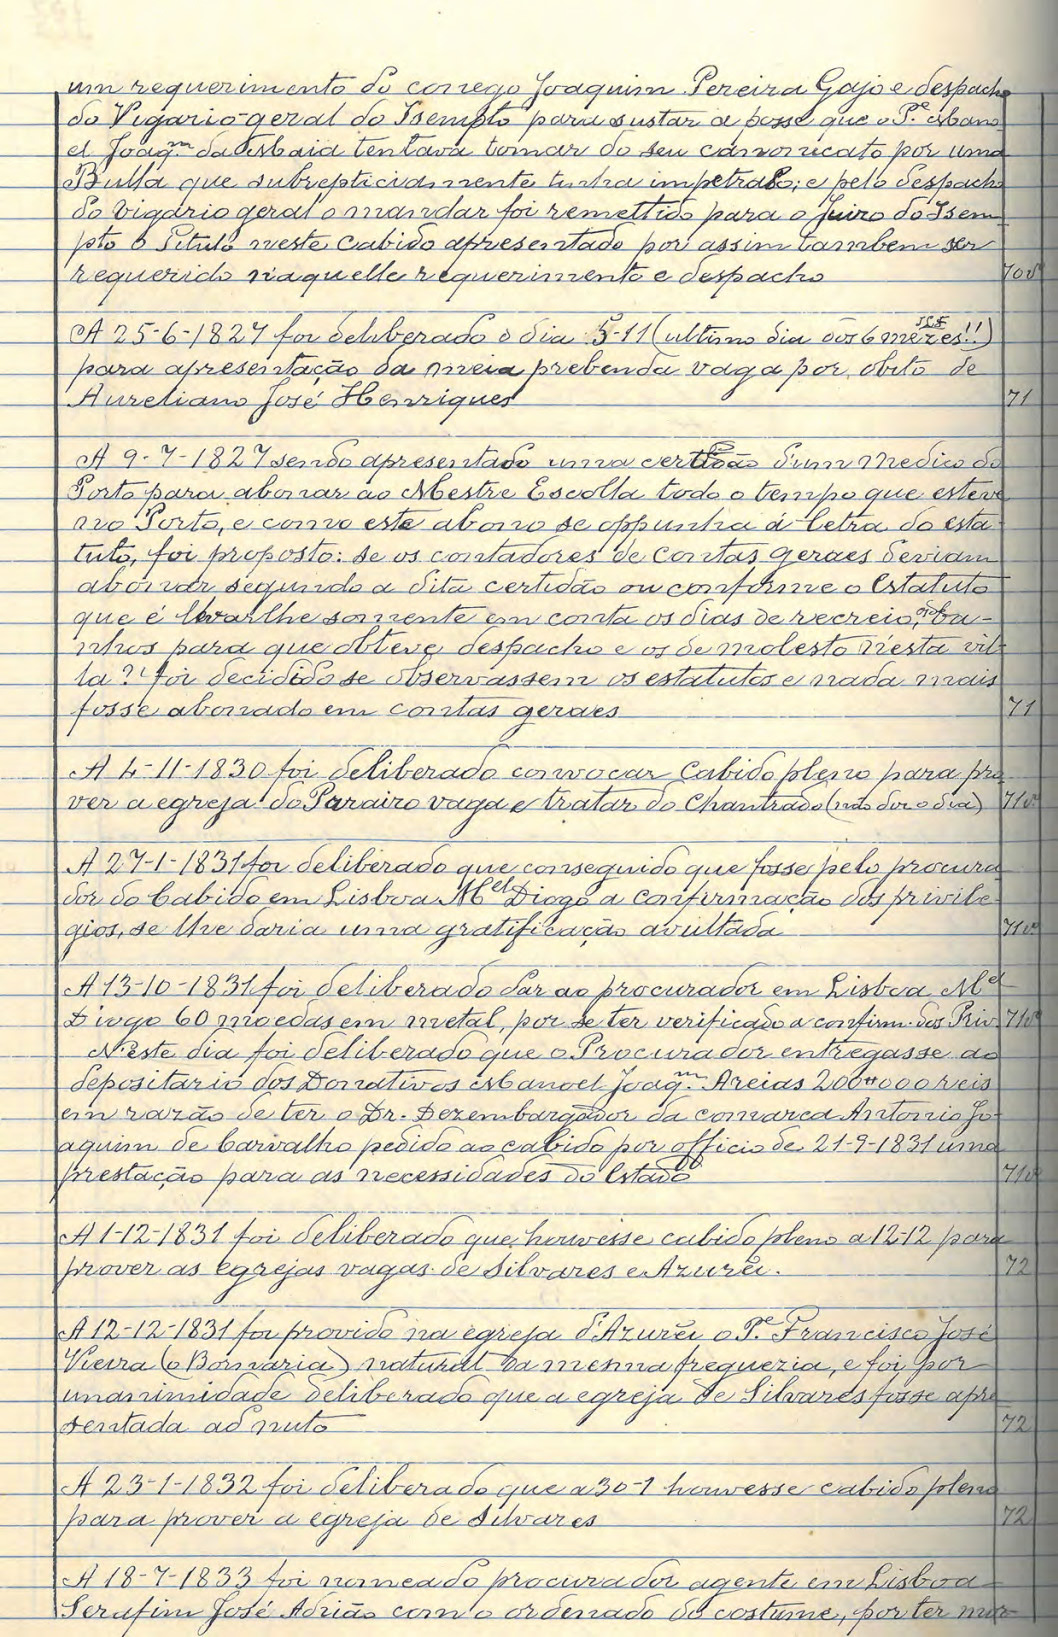 um requerimento do conego Joaquim Pereira Gajo e despacho
do Vigario-geral do Isempto para sustar a posse que o P.e Mano
el Joaq.m da Maia tentava tomar do seu canonicato por uma
Bulla que subrepticiamente tinha impetrado; e pelo despacho
do vigario geral o mandar foi remettido para o Juizo do Isem
pto o Titulo neste Cabido apresentado por assim tambem ser
requerido n'aquelle requerimento e despacho 70v
A 25-6-1827 foi deliberado o dia 5-11 (ultimo dia dos 6 mezes!!)
para apresentação da meia prebenda vaga por obito de
Aureliano José Henriques 71
A 9-7-1827 sendo apresentado uma certidão d'um Medico do
Porto para abonar ao Mestre Escolla todo o tempo que esteve
no Porto, e como este abono se oppunha á letra do esta
tuto, foi proposto: se os contadores de contas geraes deviam
abonar segundo a dita certidão ou conforme o Estatuto
que é levarlhe somente em conta os dias de recreio, ba-
nhos para que obteve despacho e os de molesto n'esta vil
la? foi decidido se observassem os estatutos e nada mais
fosse abonado em contas geraes 71
A 4-11-1830 foi deliberado convocar Cabido pleno para pro
ver a egreja do Paraizo vaga e tratar do Chantrado (não diz o dia) 71v
A 27-1-1831 foi deliberado que conseguido que fosse pelo procura
dor do Cabido em Lisboa M.el Diogo a confirmação dos privile
gios, se lhe daria uma gratificação avultada 71v
A 13-10-1831 foi deliberado dar ao procurador em Lisboa M.el
Diogo 60 moedas em metal, por se ter verificado a confirm. dos Priv. 71v
N'este dia foi deliberado que o Procurador entregasse ao
depositario dos Donativos Manoel Joaq.m Areias 200#000 reis
em razão de ter o Dr. Dezembargador da comarca Antonio Jo
aquim de Carvalho pedido ao cabido por officio de 21-9-1831 uma
prestação para as necessidades do Estado 71v
A 1-12-1831 foi deliberado que houvesse cabido pleno a 12-12 para
prover as egrejas vagas de Silvares e Azurẽi. 72
A 12-12-1831 foi provido na egreja d'Azurẽi o P.e Francisco José
Vieira (o Bornaria) natural da mesma freguezia, e foi por
unanimidade deliberado que a egreja de Silvares fosse apre
sentada ad nuto 72
A 23-1-1832 foi deliberado que a 30-1 houvesse cabido pleno
para prover a egreja de Silvares 72
A 18-7-1833 foi nomeado procurador agente em Lisboa
Serafim José Adrião com o ordenado do costume, por ter mor-